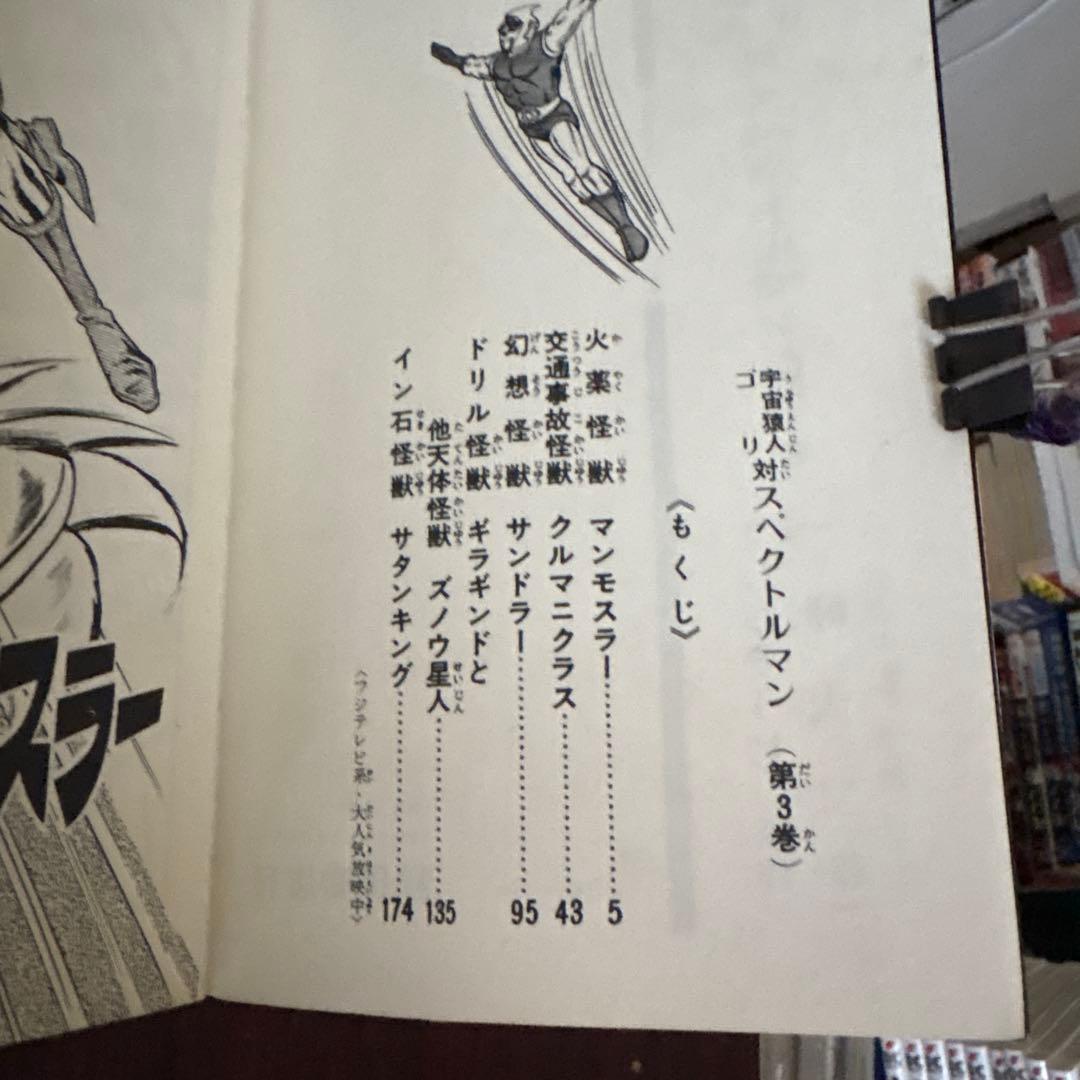 宇宙猿人ゴリ対スペクトルマン（第3巻）
《もくじ》
火薬怪獣 マンモスラー……5
交通事故怪獣 クルマニクラス……43
幻想怪獣 サンドラー……95
ドリル怪獣 ギラギンドと
他天体怪獣 ズノウ星人……135
イン石怪獣 サタンキング……174
〈フジテレビ系・大人気放映中〉
スラー